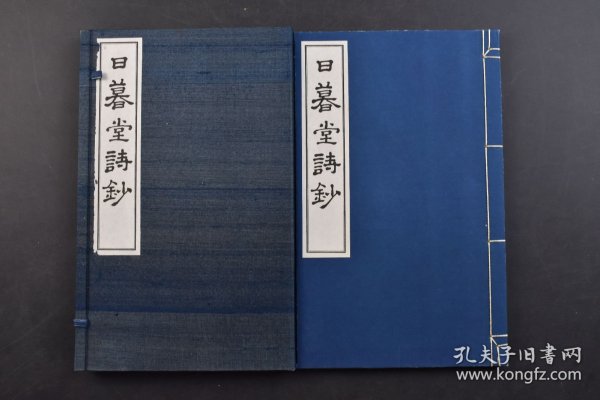 日暮堂詩鈔
日暮堂詩鈔
孔夫子旧書网
www.kongfz.com